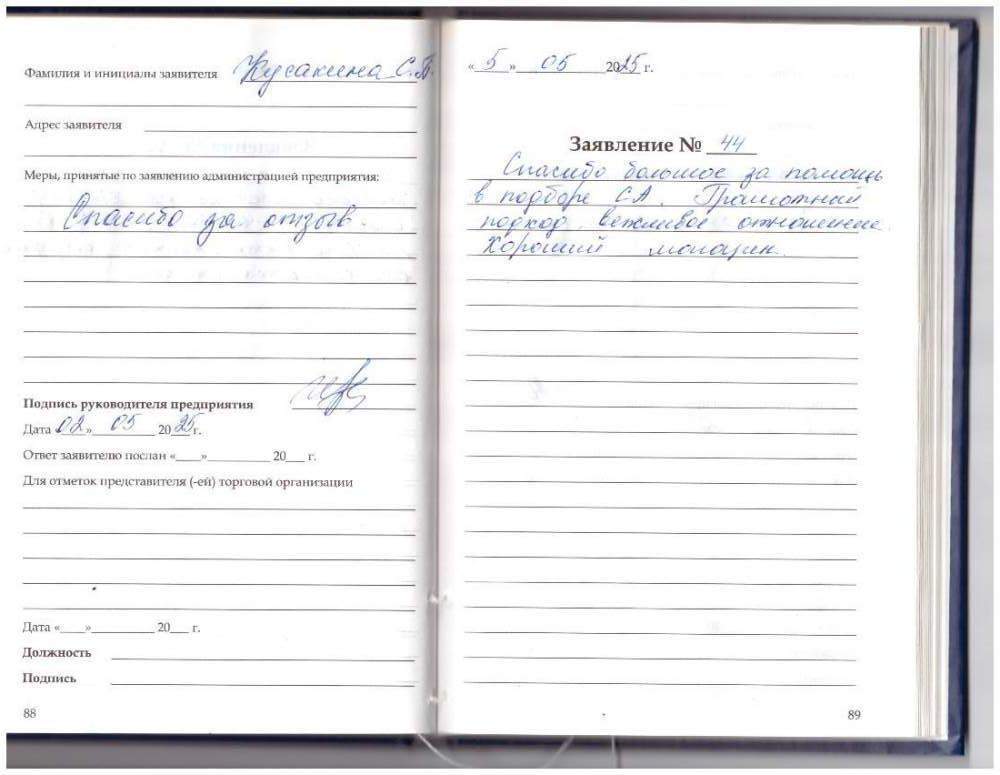 Фамилия и инициалы заявителя Кусакина С.В.
Адрес заявителя
Меры, принятые по заявлению администрацией предприятия:
Спасибо за отзыв.
Подпись руководителя предприятия
Дата «02» 05 2025 г.
Ответ заявителю послан «____»__________ 20___ г.
Для отметок представителя (-ей) торговой организации
Дата «____»__________ 20___ г.
Должность
Подпись
88
« 5 » 05 2025 г.
Заявление № 44
Спасибо большое за помощь
в подборе СА. Грамотный
подход, вежливое отношение.
Хороший магазин.
89